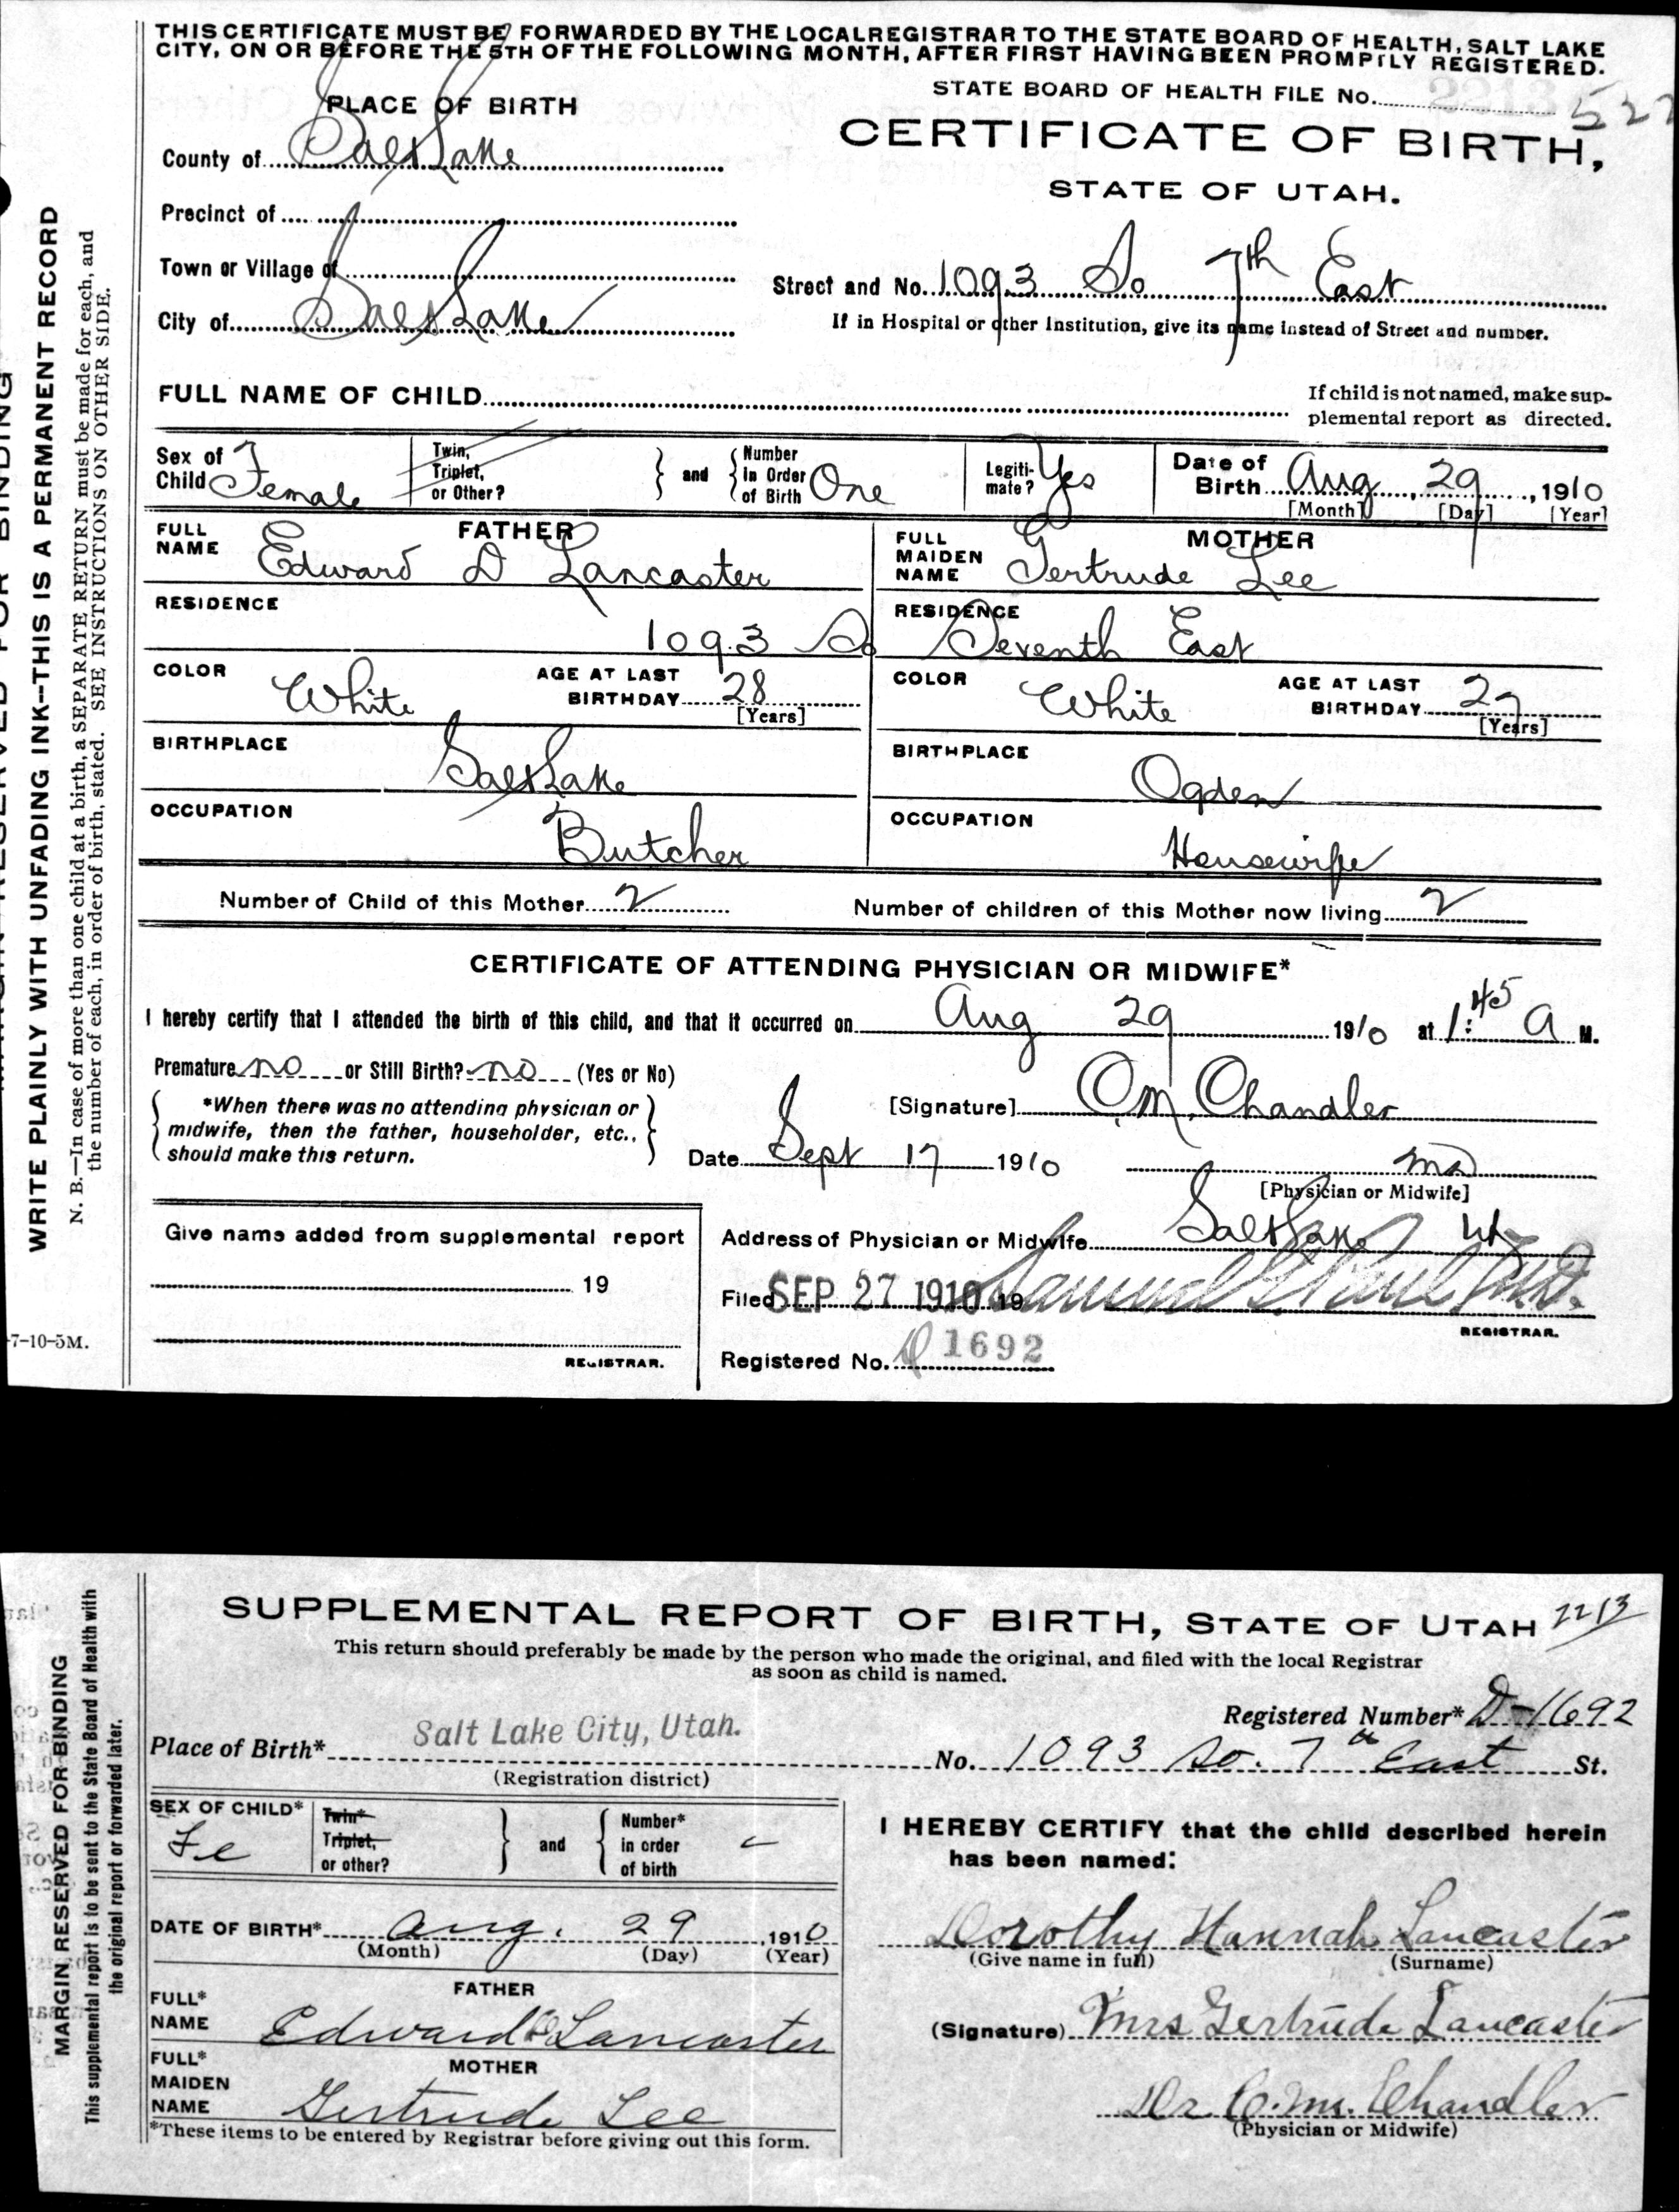 THIS CERTIFICATE MUST BE FORWARDED BY THE LOCAL REGISTRAR TO THE STATE BOARD OF HEALTH, SALT LAKE
CITY, ON OR BEFORE THE 5TH OF THE FOLLOWING MONTH, AFTER FIRST HAVING BEEN PROMPTLY REGISTERED.
STATE BOARD OF HEALTH FILE No. 2213 522
CERTIFICATE OF BIRTH,
STATE OF UTAH.
PLACE OF BIRTH
County of Salt Lake
Precinct of
Town or Village of
City of Salt Lake
Street and No. 1093 So 7th East
If in Hospital or other Institution, give its name instead of Street and number.
FULL NAME OF CHILD
If child is not named, make sup-
plemental report as directed.
Sex of Child Female
Twin, Triplet, or Other? } and { Number in Order of Birth One
Legiti-mate? Yes
Date of Birth Aug, 29, 1910
[Month] [Day] [Year]
FATHER
FULL NAME Edward D Lancaster
MOTHER
FULL MAIDEN NAME Gertrude Lee
RESIDENCE RESIDENCE
1093 So Seventh East
COLOR White AGE AT LAST BIRTHDAY 28 [Years]
COLOR White AGE AT LAST BIRTHDAY 27 [Years]
BIRTHPLACE Salt Lake
BIRTHPLACE Ogden
OCCUPATION Butcher
OCCUPATION Housewife
Number of Child of this Mother 2 Number of children of this Mother now living 2
CERTIFICATE OF ATTENDING PHYSICIAN OR MIDWIFE*
I hereby certify that I attended the birth of this child, and that it occurred on Aug 29 1910 at 1:45 A M.
Premature no or Still Birth? no (Yes or No)
*When there was no attending physician or
midwife, then the father, householder, etc.,
should make this return.
[Signature] O.M. Chandler
Date Sept 17 1910 MD
[Physician or Midwife]
Give name added from supplemental report
19
REGISTRAR.
Address of Physician or Midwife Salt Lake Ut
Filed SEP 27 1910 19 Samuel G. Paul M.D.
REGISTRAR.
Registered No. D 1692
WRITE PLAINLY WITH UNFADING INK--THIS IS A PERMANENT RECORD
N. B.—In case of more than one child at a birth, a SEPARATE RETURN must be made for each, and
the number of each, in order of birth, stated. SEE INSTRUCTIONS ON OTHER SIDE.
-7-10-5M.
SUPPLEMENTAL REPORT OF BIRTH, STATE OF UTAH 2213
This return should preferably be made by the person who made the original, and filed with the local Registrar
as soon as child is named.
Registered Number* D-1692
Place of Birth* Salt Lake City, Utah. No. 1093 So. 7th East St.
(Registration district)
SEX OF CHILD* Fe
Twin* Triplet, or other? } and { Number* in order of birth
DATE OF BIRTH* Aug. 29, 1910
(Month) (Day) (Year)
FATHER
FULL* NAME Edward D Lancaster
MOTHER
FULL* MAIDEN NAME Gertrude Lee
*These items to be entered by Registrar before giving out this form.
I HEREBY CERTIFY that the child described herein
has been named:
Dorothy Hannah Lancaster
(Give name in full) (Surname)
(Signature) Mrs Gertrude Lancaster
Dr O.M. Chandler
(Physician or Midwife)
MARGIN RESERVED FOR BINDING
This supplemental report is to be sent to the State Board of Health with
the original report or forwarded later.